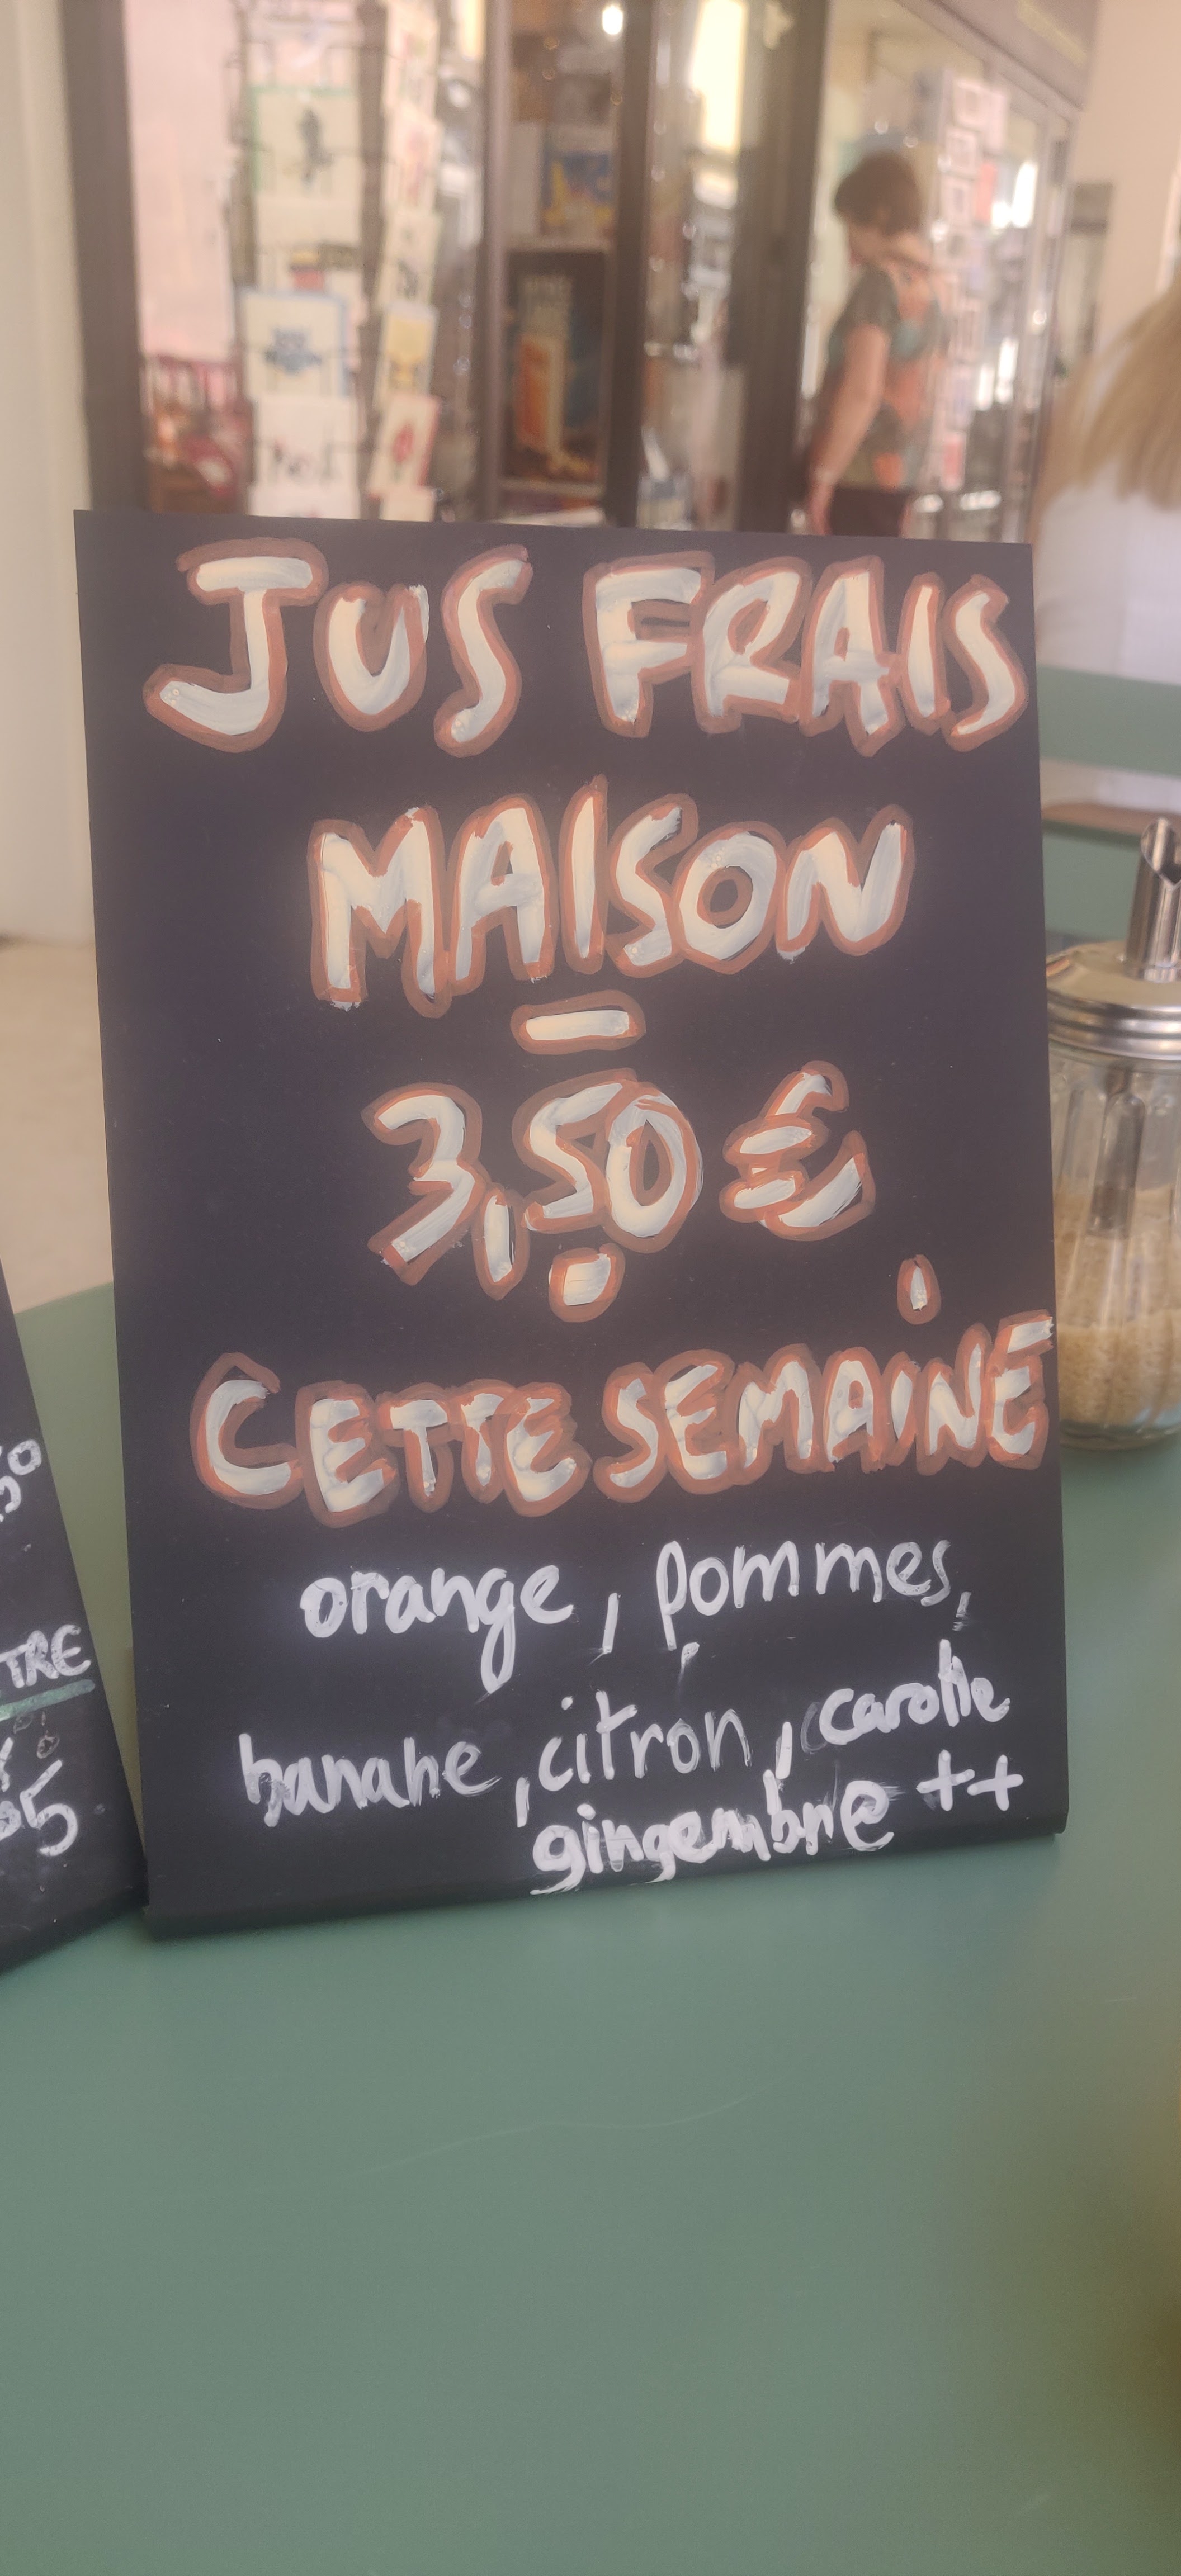 JUS FRAIS
MAISON
-
3,50 €
CETTE SEMAINE
orange, pommes,
banane, citron, carotte
gingembre ++
50
TRE
5